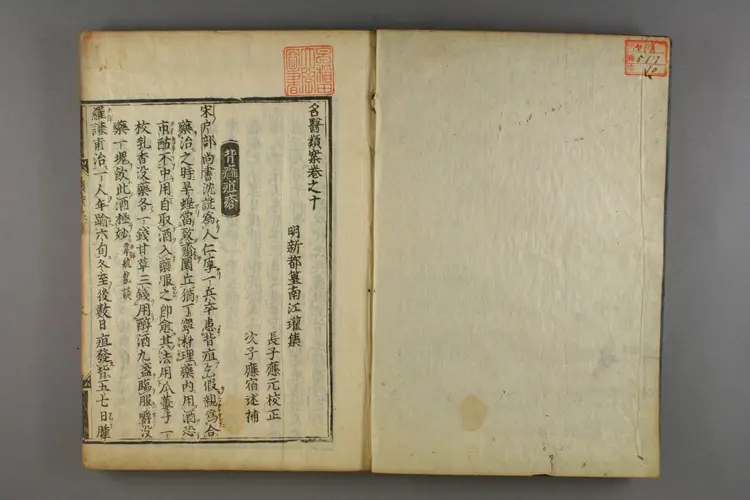 名醫類案卷之十
明新都篁南江瓘集
長子應元校正
次子應宿述補
背癰疽瘡
宋戶部尚書沈詵爲人仁厚一兵卒患背疽乞假親爲合
藥治之時旱蝗當致齋圜丘猶丁寧料理藥內用酒恐
市酤不中用自取酒入藥服之即愈其法用瓜蔞子一
枚乳香沒藥各一錢甘草三錢用醇酒九盞臨服嚼沒
藥一塊飲此酒極妙
羅謙甫治一人年踰六旬冬至後數日疽發背五七日腫
517
10